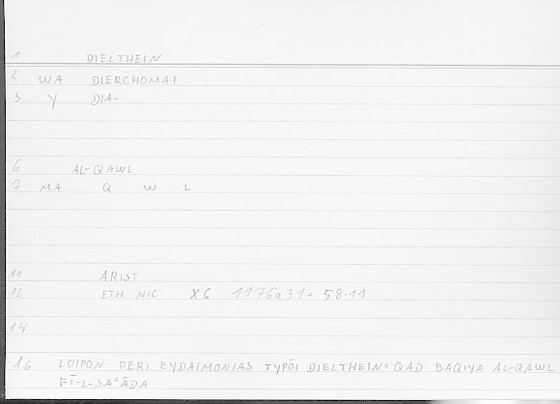 1 DIELTHEIN
2 WA DIERCHOMAI
3 Y DIA-
6 AL-QAWL
7 MA Q W L
11 ARIST
12 ETH NIC X6 1176a31= 58.11
14
16 LOIPON PERI EYDAIMONIAS TYPŌI DIELTHEIN= QAD BAQIYA AL-QAWL
FĪ-L-SAʿĀDA